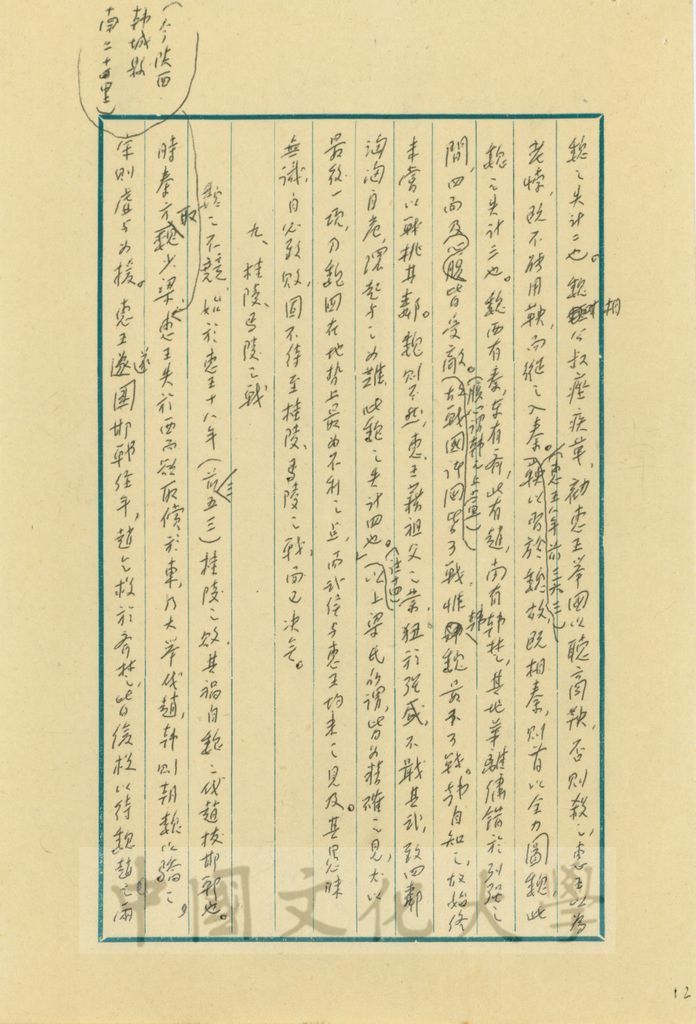 魏之失計二也。魏相公叔痤疾革，勸惠王舉國以聽商鞅，否則殺之，惠王以為
老悖，既不能用鞅，而縱之入秦。（惠王年前美之）鞅以習於魏故，既相秦，則首以全力圖魏，此
魏之失計三也。魏西有秦，東有齊，北有趙，南有韓楚，其地華離傭錯於列強之
間，四面及心腹皆受敵。（腹謂韓之上黨）故戰國諸國皆可戰，惟魏最不可戰。韓自知之，故始終
未嘗以戰挑其鄰。魏則不然，惠王藉祖父之業，狃於强盛，不戢其武，致四鄰
洶洶自危，隙起與之為難，此魏之失計四也。」以上梁氏所謂，皆為精確之見，尤以
最後一項，乃魏國在地勢上最為不利之点，而武侯與惠王均未之見及。其愚昧
無識，自必致敗，固不待至桂陵、馬陵之戰，而已決矣。
九、桂陵、馬陵之戰
魏之不競，始於惠王十八年（前三五三）桂陵之敗，其禍自魏之伐趙拔邯鄲也。
時秦方取魏少梁，惠王失於西而欲取償於東，乃大舉伐趙，韓則朝魏以驕之，
（今陝西
韓城縣
南二十里）
宋則虛與為援。惠王遂圍邯鄲經年，趙乞救於齊楚，皆緩救以待魏趙之兩
12
中國文化大學